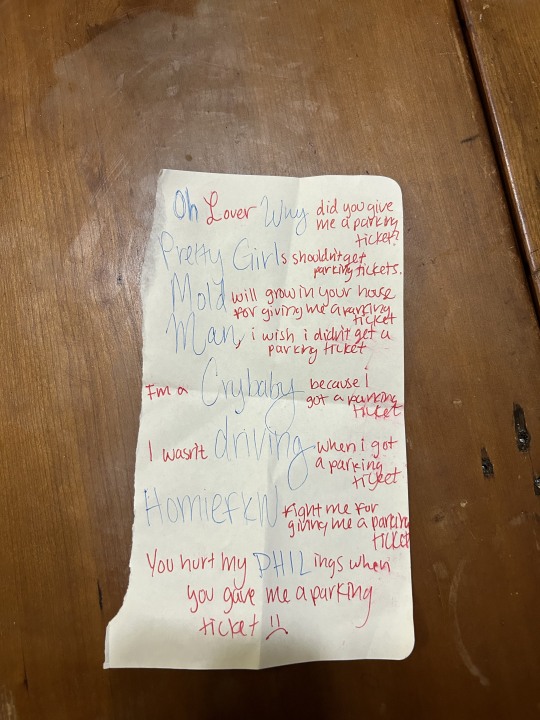 Oh Lover Why did you give
me a parking
ticket?
Pretty Girls shouldn't get
parking tickets.
Mold will grow in your house
for giving me a parking
ticket
Man, i wish i didn't get a
parking ticket
I'm a Crybaby because I
got a parking
ticket
I wasn't driving when i got
a parking
ticket
HomiefKW fight me for
giving me a parking
ticket
You hurt my PHILings when
you gave me a parking
ticket !!